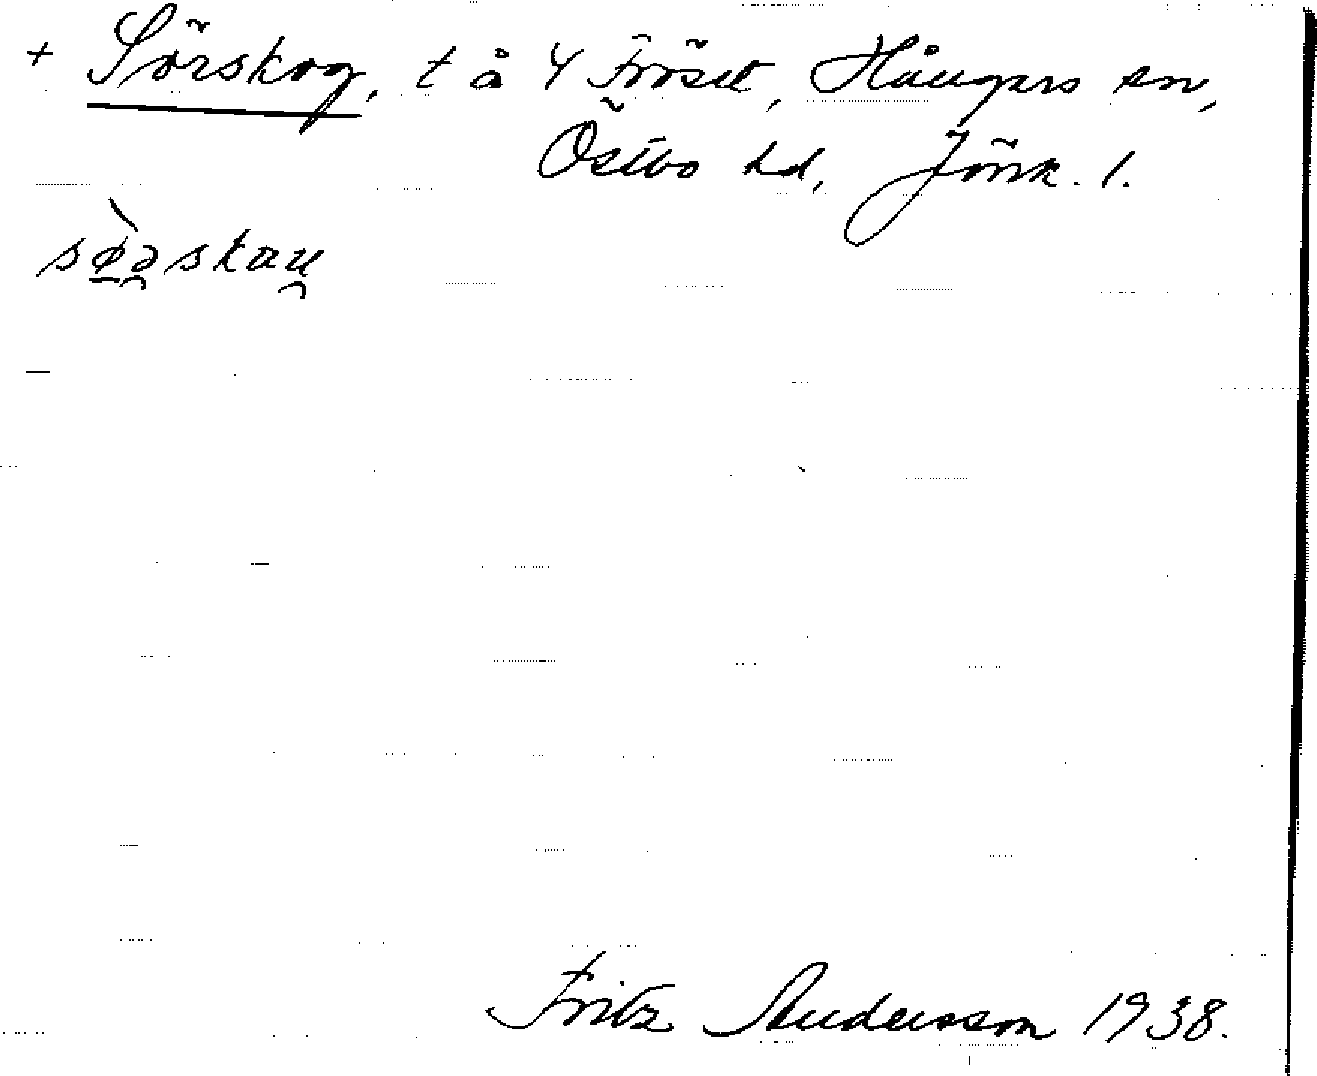 + Sörskog, t å 4 Fröset, Hångers sn,
Östbo hd, Jönk. l.
sø̀ə̯skau̯
Fritz Andersson 1938.